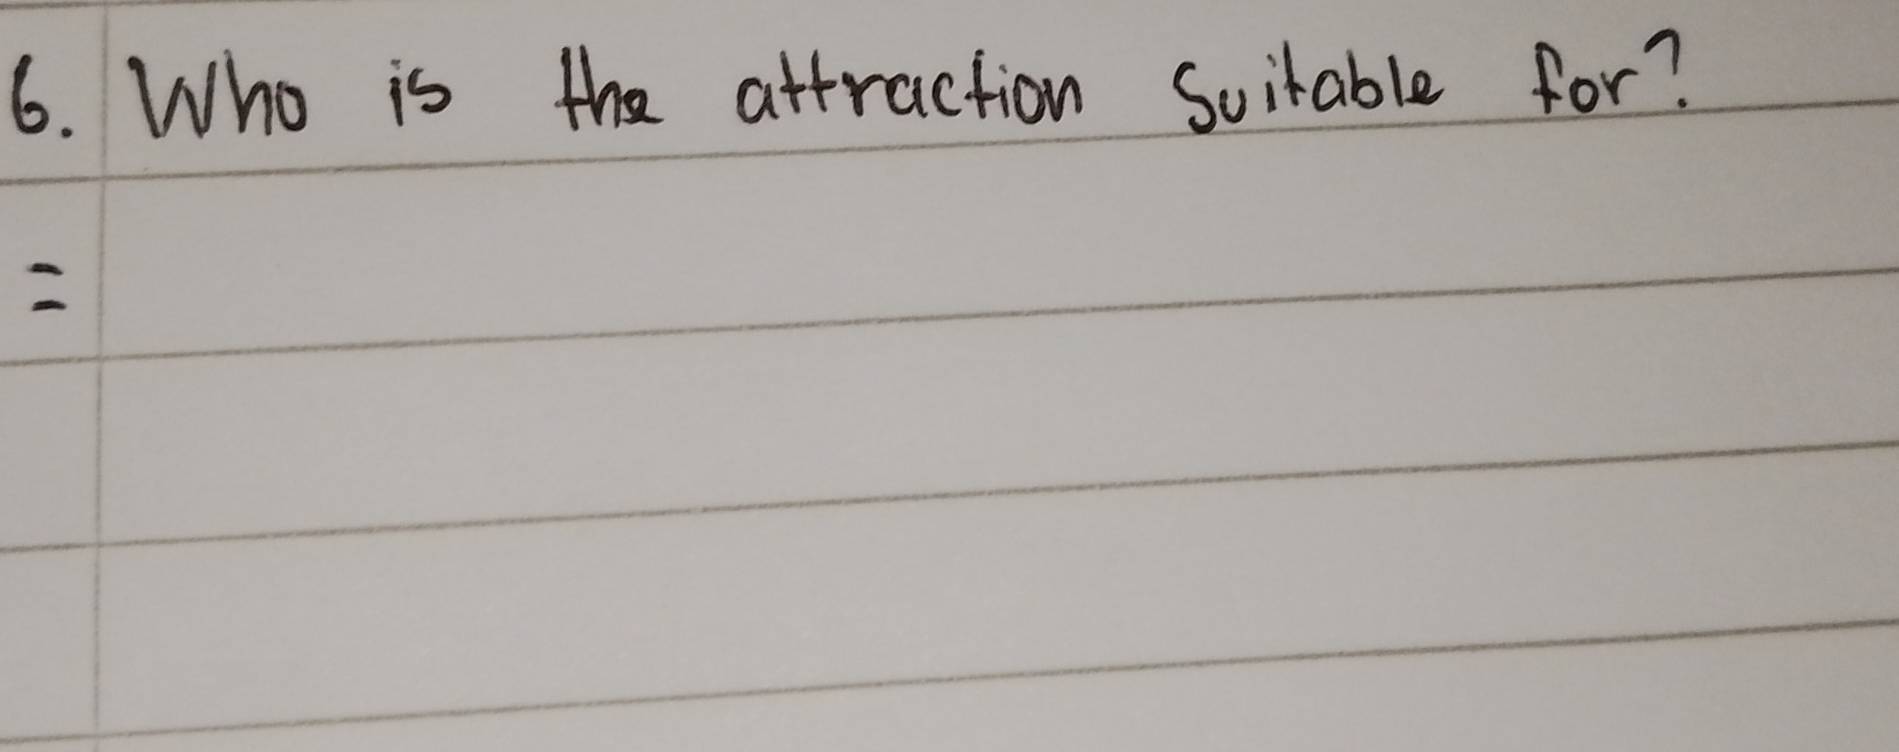 6. Who is the attraction suitable for?
=